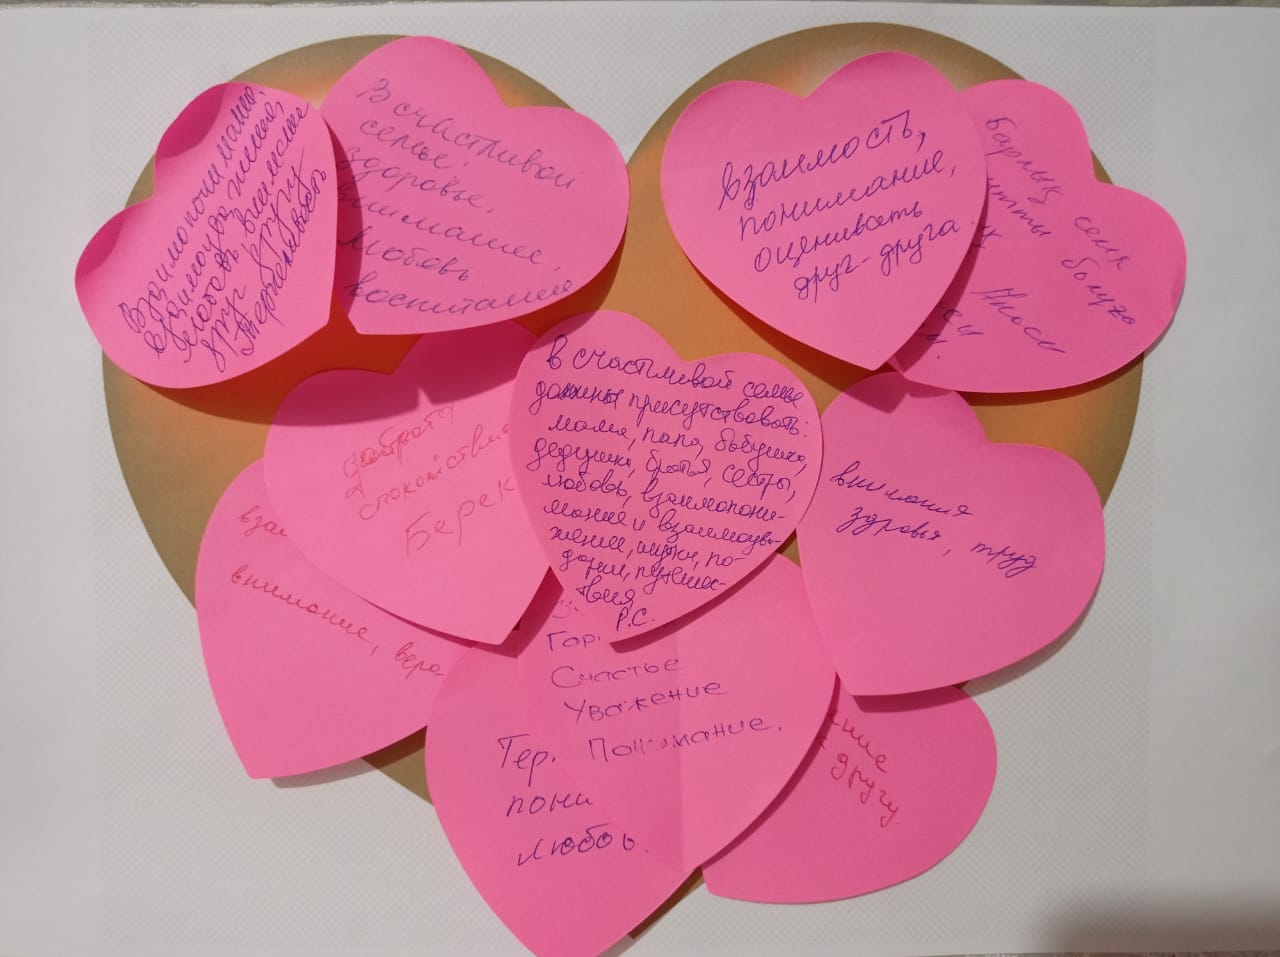 Взаимопонимание,
взаимоуважение,
любовь, внимание
друг другу
Терпеливость
В счастливой
семье:
здоровье,
внимание,
любовь
воспитание
взаимость,
понимание,
оценивать
друг-друга
барлық
болуға
доброта
спокойствие
Берек
в счастливой семье
должны присутствовать:
мама, папа, бабушка,
дедушка, братья, сестры,
любовь, взаимопони-
мание и взаимоува-
жение, шутки, по-
дарки, путешес-
твия
Р.С.
внимания
здоровья, труд
взаи
внимание, вера
Гор.
Счастье
Уважение
Понимание.
Тер.
пони
любовь
ение
другу.